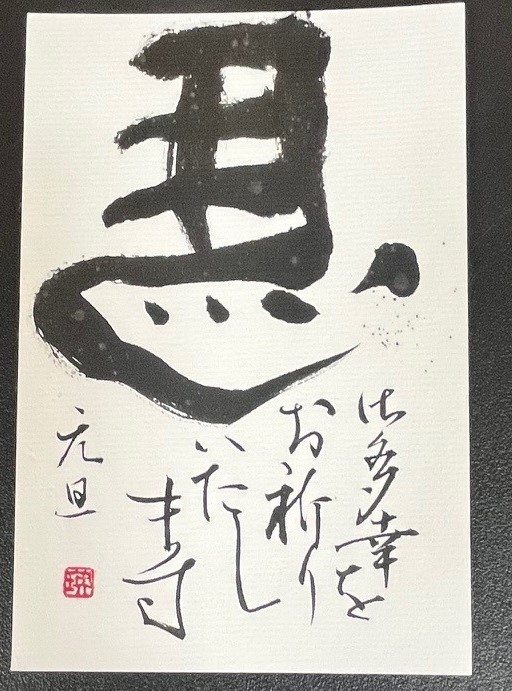 馬
御多幸を
お祈り
いたし
ます
元旦